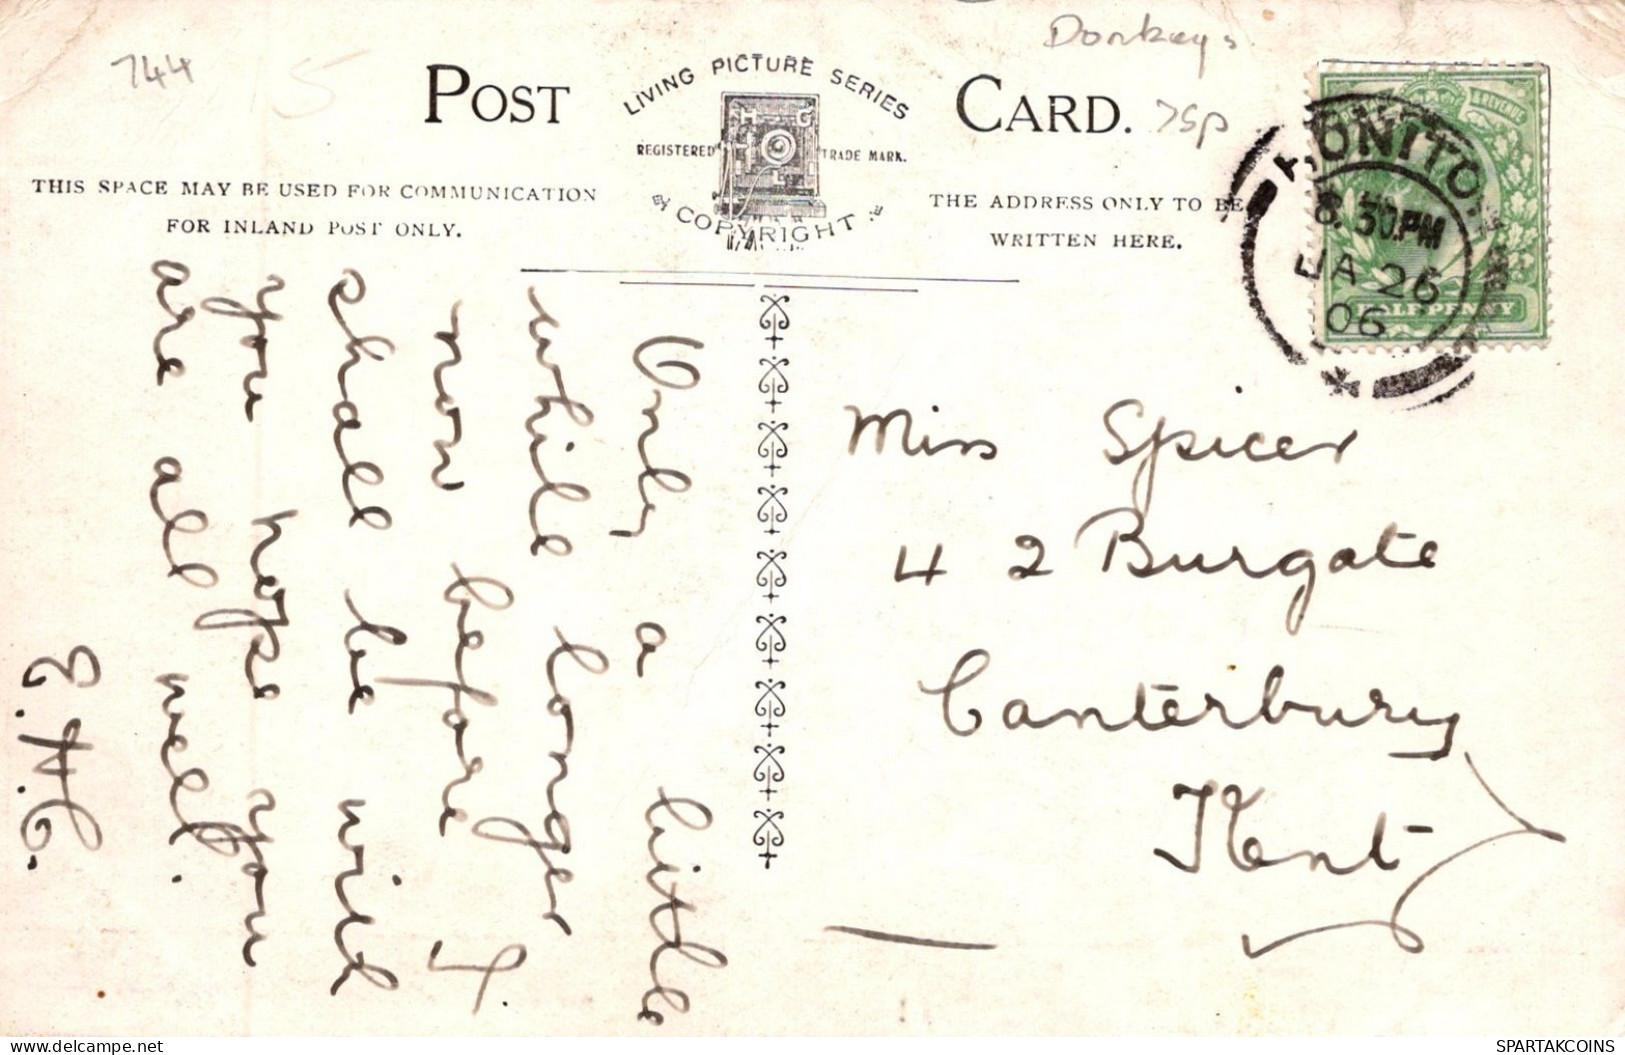 744
Donkeys
POST CARD. 75p
LIVING PICTURE SERIES
H G
REGISTERED TRADE MARK.
COPYRIGHT
THIS SPACE MAY BE USED FOR COMMUNICATION
FOR INLAND POST ONLY.
THE ADDRESS ONLY TO BE
WRITTEN HERE.
HONITON
8.30PM
JA 26
06
& REVENUE
HALFPENNY
Only a little
while longer
now before I.
shall be with
you hope you
are all well.
E.H.C.
Miss Spicer
42 Burgate
Canterbury
Kent
SPARTAKCOINS